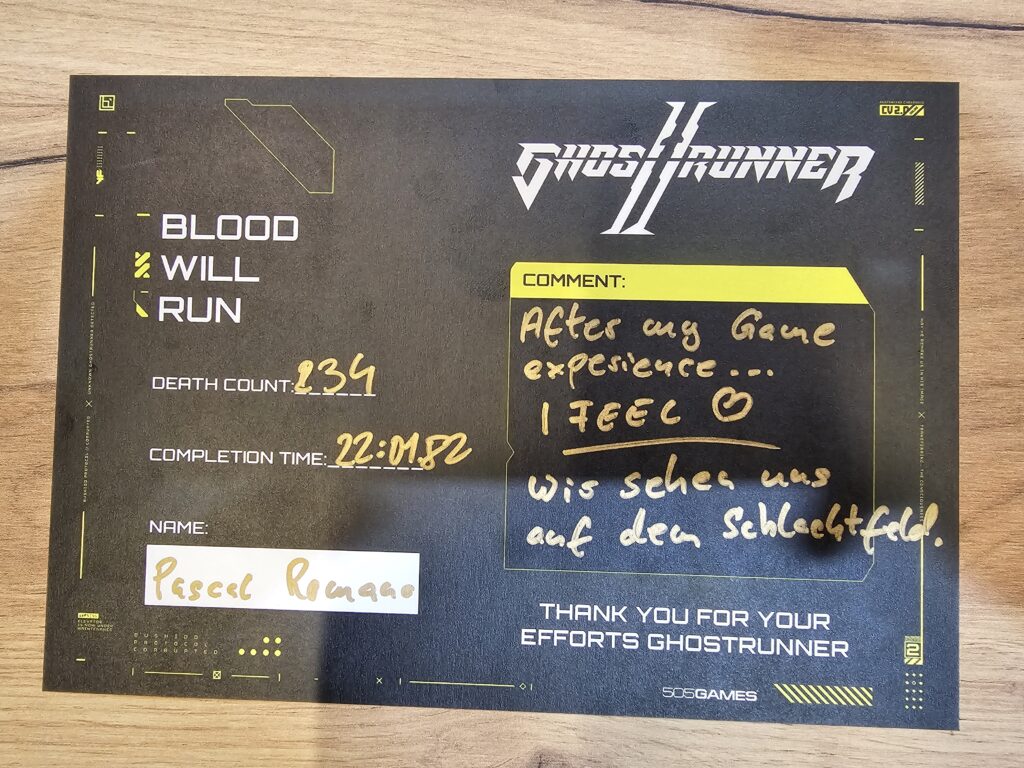 GHOSTRUNNER
II
BLOOD
WILL
RUN
DEATH COUNT: 234
COMPLETION TIME: 22:01.82
NAME:
Pascal Romano
COMMENT:
After my Game
experience...
I FEEL ♡
wir sehen uns
auf dem Schlachtfeld.
THANK YOU FOR YOUR
EFFORTS GHOSTRUNNER
505GAMES
BUSHIDO
PROTOCOL
CORRUPTED
2